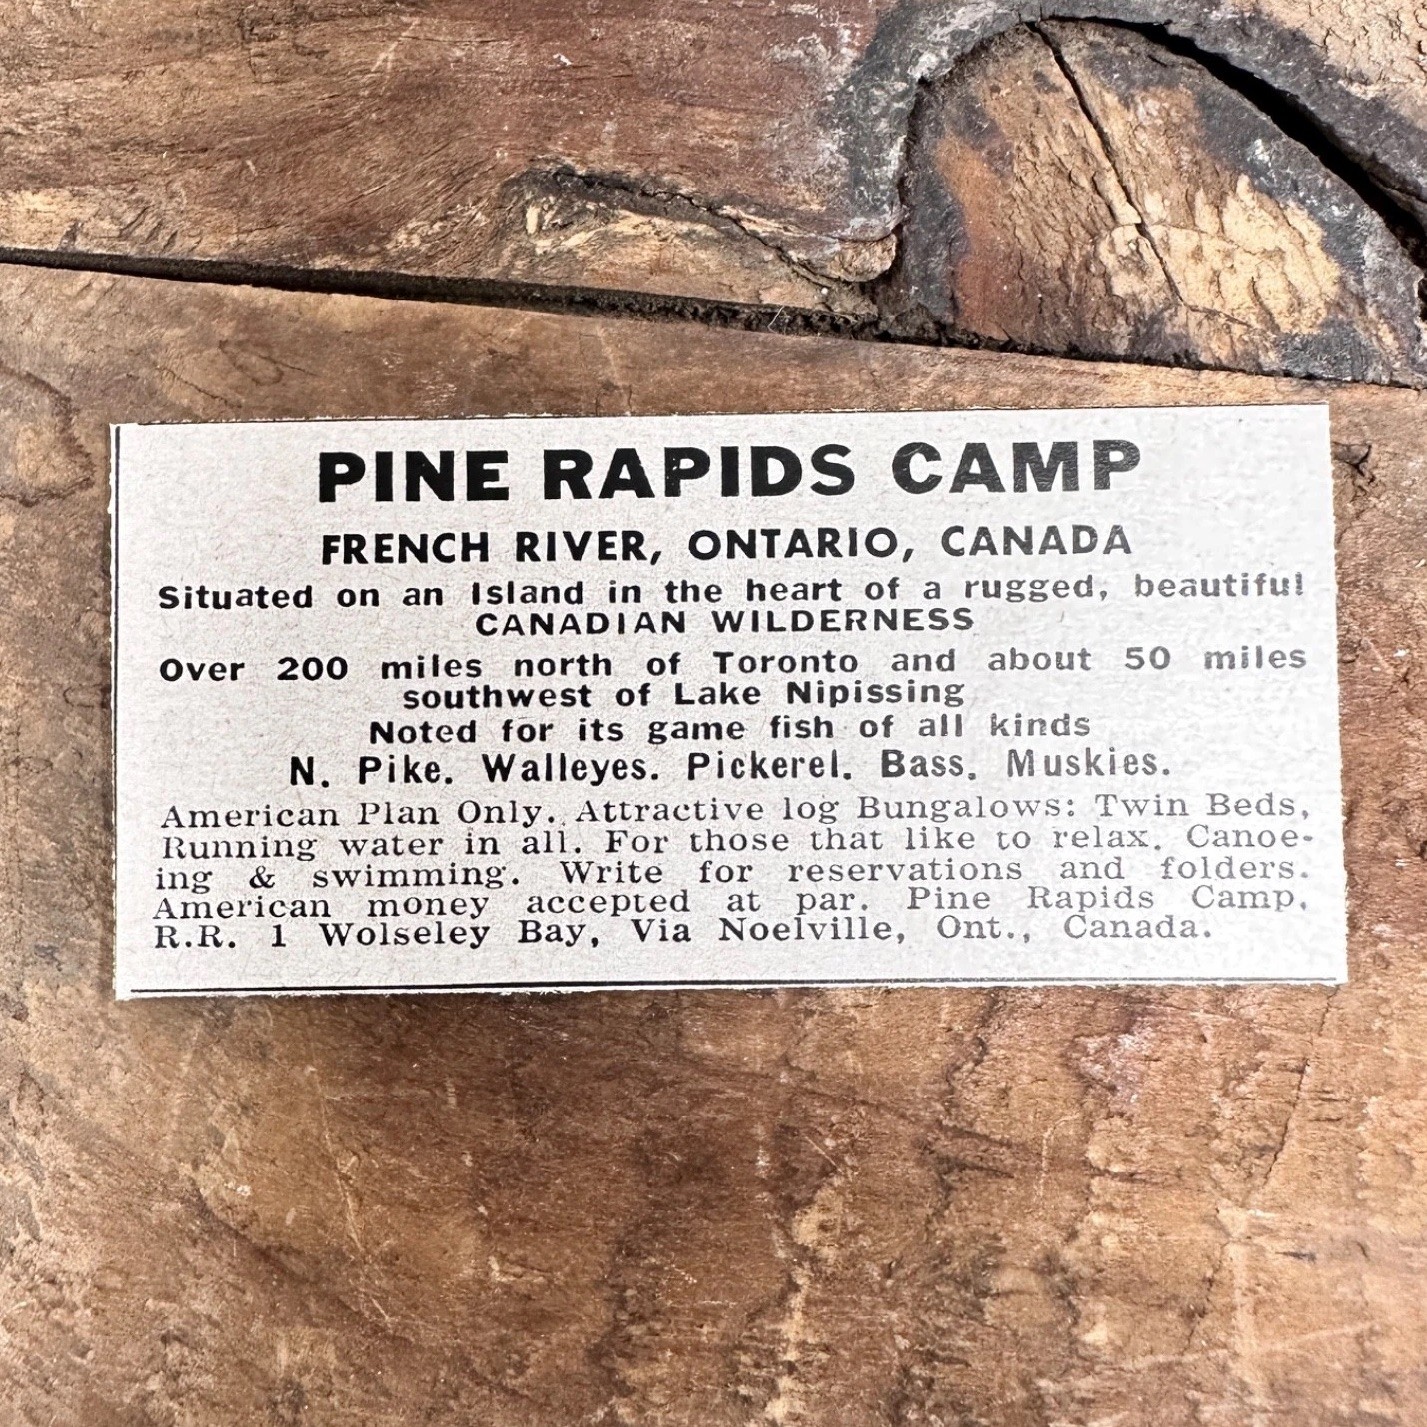 PINE RAPIDS CAMP
FRENCH RIVER, ONTARIO, CANADA
Situated on an Island in the heart of a rugged, beautiful
CANADIAN WILDERNESS
Over 200 miles north of Toronto and about 50 miles
southwest of Lake Nipissing
Noted for its game fish of all kinds
N. Pike. Walleyes. Pickerel. Bass. Muskies.
American Plan Only. Attractive log Bungalows: Twin Beds,
Running water in all. For those that like to relax. Canoe-
ing & swimming. Write for reservations and folders.
American money accepted at par. Pine Rapids Camp,
R.R. 1 Wolseley Bay, Via Noelville, Ont., Canada.